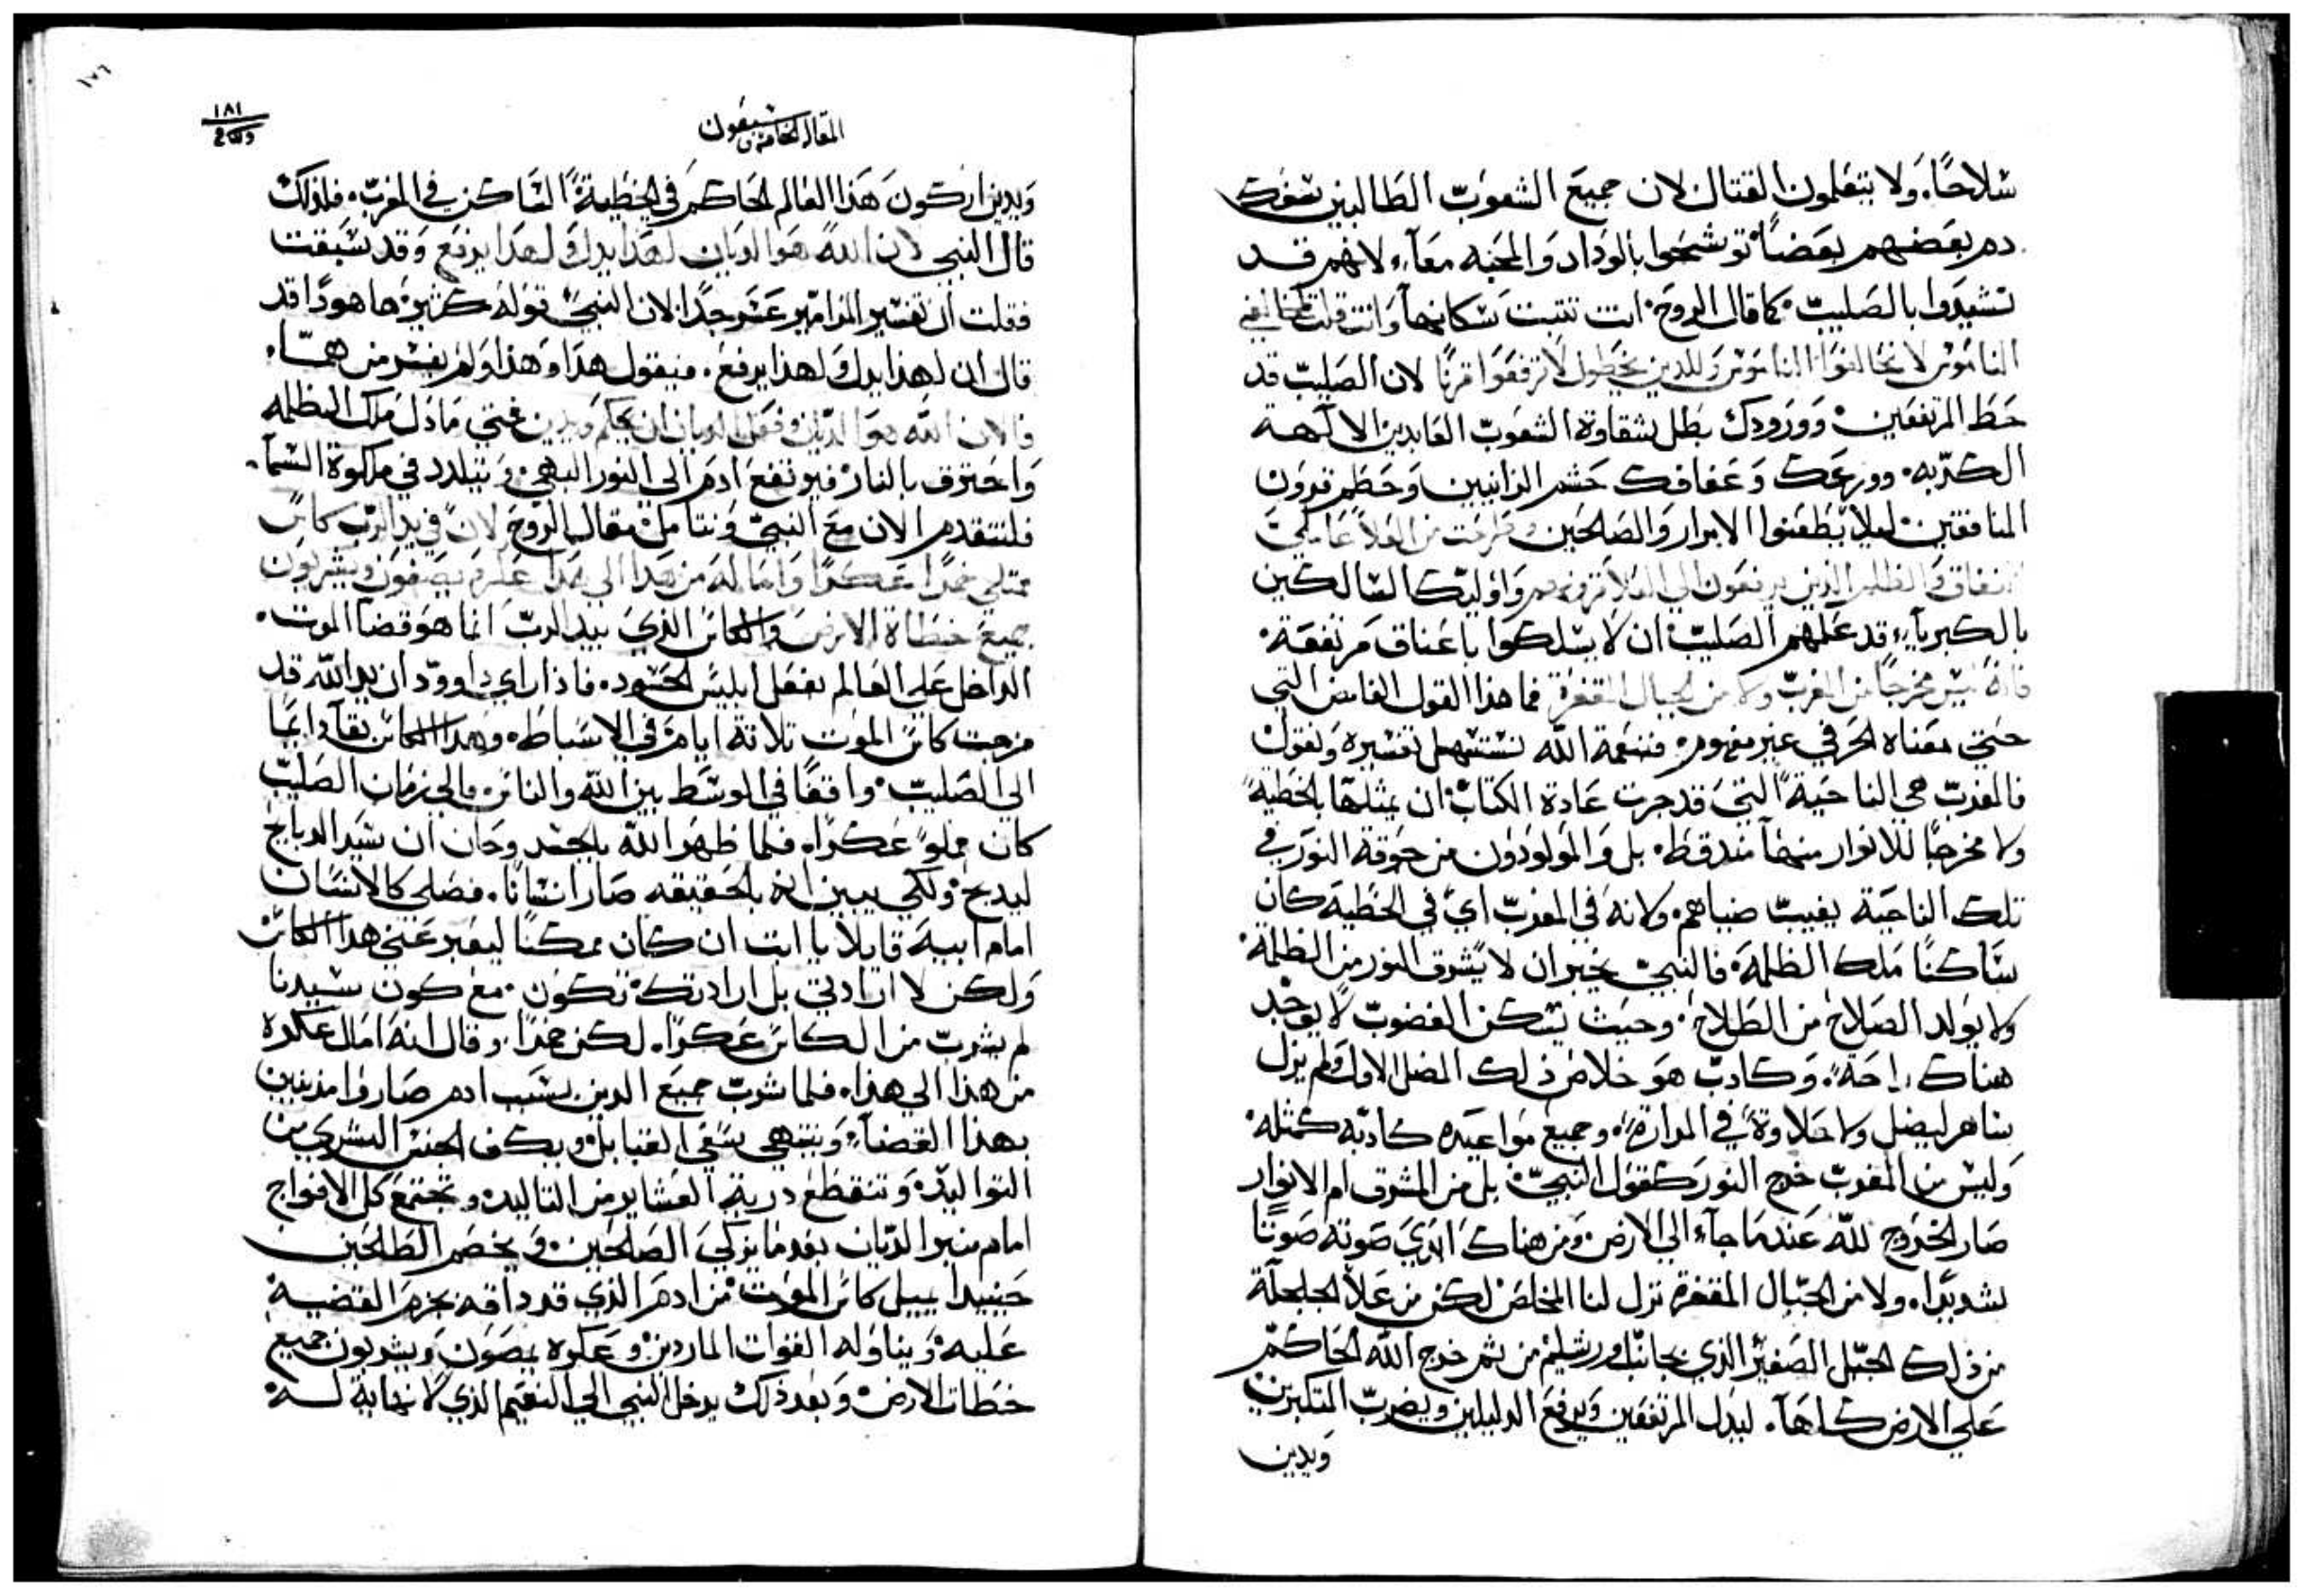 سلاحًا. ولا يتعلمون القتال لان جميع الشعوب الطالبين سفك
دم بعضهم بعضًا توشحوا بالوداد والمحبه معآء لانهم قد
تشيدوا بالصليب. كما قال الروح. انت تتبت سكانها وانت قلت
الناموس لا تخالفوا الناموس وللدين يخطون لا ترفعوا قرنًا لان الصليب قد
حط المرتفعين. وورودك بطل شقاوة الشعوب العابدين الالهة
الكدبه. وورعك وعفافك حشم الزانيين وحطم قرون
المنافقين. ليلا يطعنوا الابرار والصالحين
النفاق والظلم الدين يرفعون الي العلا قرونهم واوليك السالكين
بالكبريآء. قد علمهم الصليب ان لا يسلكوا باعناق مرتفعة.
فانه ليس مخرجًا من الغرب ولا من الجبال المقفرة فما هذا القول الغامض التي
حتي معناه الحرفي غير مفهوم. فنعمة الله تستسهل تفسيره ونقول
فالمغرب هي الناحية التي قد جرت عادة الكتاب ان يمثلها بالخطية
ولا مخرجًا للانوار منهآ مند قط. بل والمولودون من جوقة النور في
تلك الناحية يغيب ضياهم. ولانه في المغرب اي في الخطية كان
ساكنًا ملك الظلمة. فالنبي يخبر ان لا يشرق النور من الظلمة.
ولا يولد الصلاح من الطلاح. وحيث تسكن الغضوب لا يوجد
هناك راحة. وكادب هو خلاص ذلك المضل الاول ولم يزل
بناهر ليضل ولا حلاوة في المرارة. وجميع مواعيده كادبه كمثله.
وليس من المغرب خرج النور كقول النبي. بل من المشرق ام الانوار
صار الخروج لله عندما جآء الي الارض. ومن هناك ابدي صوته صوتًا
شديدًا. ولا من الجبال المقفرة نزل لنا المخلص لكن من علا الجلجلة
من ذلك الجبل الصغير الذي بجانب اورشليم من ثم خرج الله الحاكم
علي الارض كلها. ليدل المرتفعين ويرفع الدليلين ويضرب المتكبرين
ويدين
المقالة الخامس سبعون
١٨١
ويدين اركون هذا العالم الحاكم في الخطية الساكن في المغرب. فلذلك
قال النبي لان الله هوا الديان لهدا يدل ولهدا يرفع وقد سبقت
فقلت ان تفسير المزامير عسر جدًا لان النبي قوله كثير. ها هودا قد
قال ان لهذا يدل ولهذا يرفع. فيقول هدا وهذا ولم يفسر من همآ.
فالان الله هوا الديان وفعل الديان ان يحكم ويدين فمتي مادل ملك الظلمه
واحترق بالنار فيرتفع ادم الي النور البهي. ويتلدد في ملكوة السمآ.
فلنتقدم الان مع النبي ونتامل مقال الروح لان في يد الرب كاس
ممتلي خمرًا عكرًا وامالهَ من هدا الي هدا عكره يمصون ويشربون
جميع خطاة الارض والكاس الذي بيد الرب انما هو قضآ الموت.
الداخل علي العالم بفعل ابليس الحسود. فاذا راي داوود ان يد الله قد
مزجت كاس الموت تلاتة ايام في الاسباط. وهدا الكاس بقا دايمًا
الي الصليب. واقفًا في الوسط بين الله والناس والي زمان الصليب
كان مملوً عكرًا. فلما ظهر الله بالجسد وحان ان سيد الدبايح
ليدبح. ولكي يبين انه بالحقيقه صار انسانًا. فصلي كالانسان
امام ابيه قايلًا يا ابت ان كان ممكنًا ليعبر عني هدا الكاس
ولكن لا ارادتي بل ارادتك تكون. مع كون سيدنا
لم يشرب من الكاس عكرًا. لكن خمرًا. وقال انه امال عكره
من هذا الي هذا. فلما شرب جميع الدين بسبب ادم صاروا مذنبين
بهذا القضآء. وينتهي سعي القبايل. ويكف الجنس البشري من
التواليد. وتنقطع درية العشاير من التاليد. وتجتمع كل الافواج
امام منبر الديان بعدما يزكي الصالحين. ويخصم الطالحين
حينيدا يميل كاس الموت من ادم الذي قد داقه بجزم القضيه
عليه. ويناوله القوات الماردين. وعكره يمصون ويشربون جميع
خطات الارض. وبعد ذلك يدخل النبي الي النعيم الذي لا نهاية له